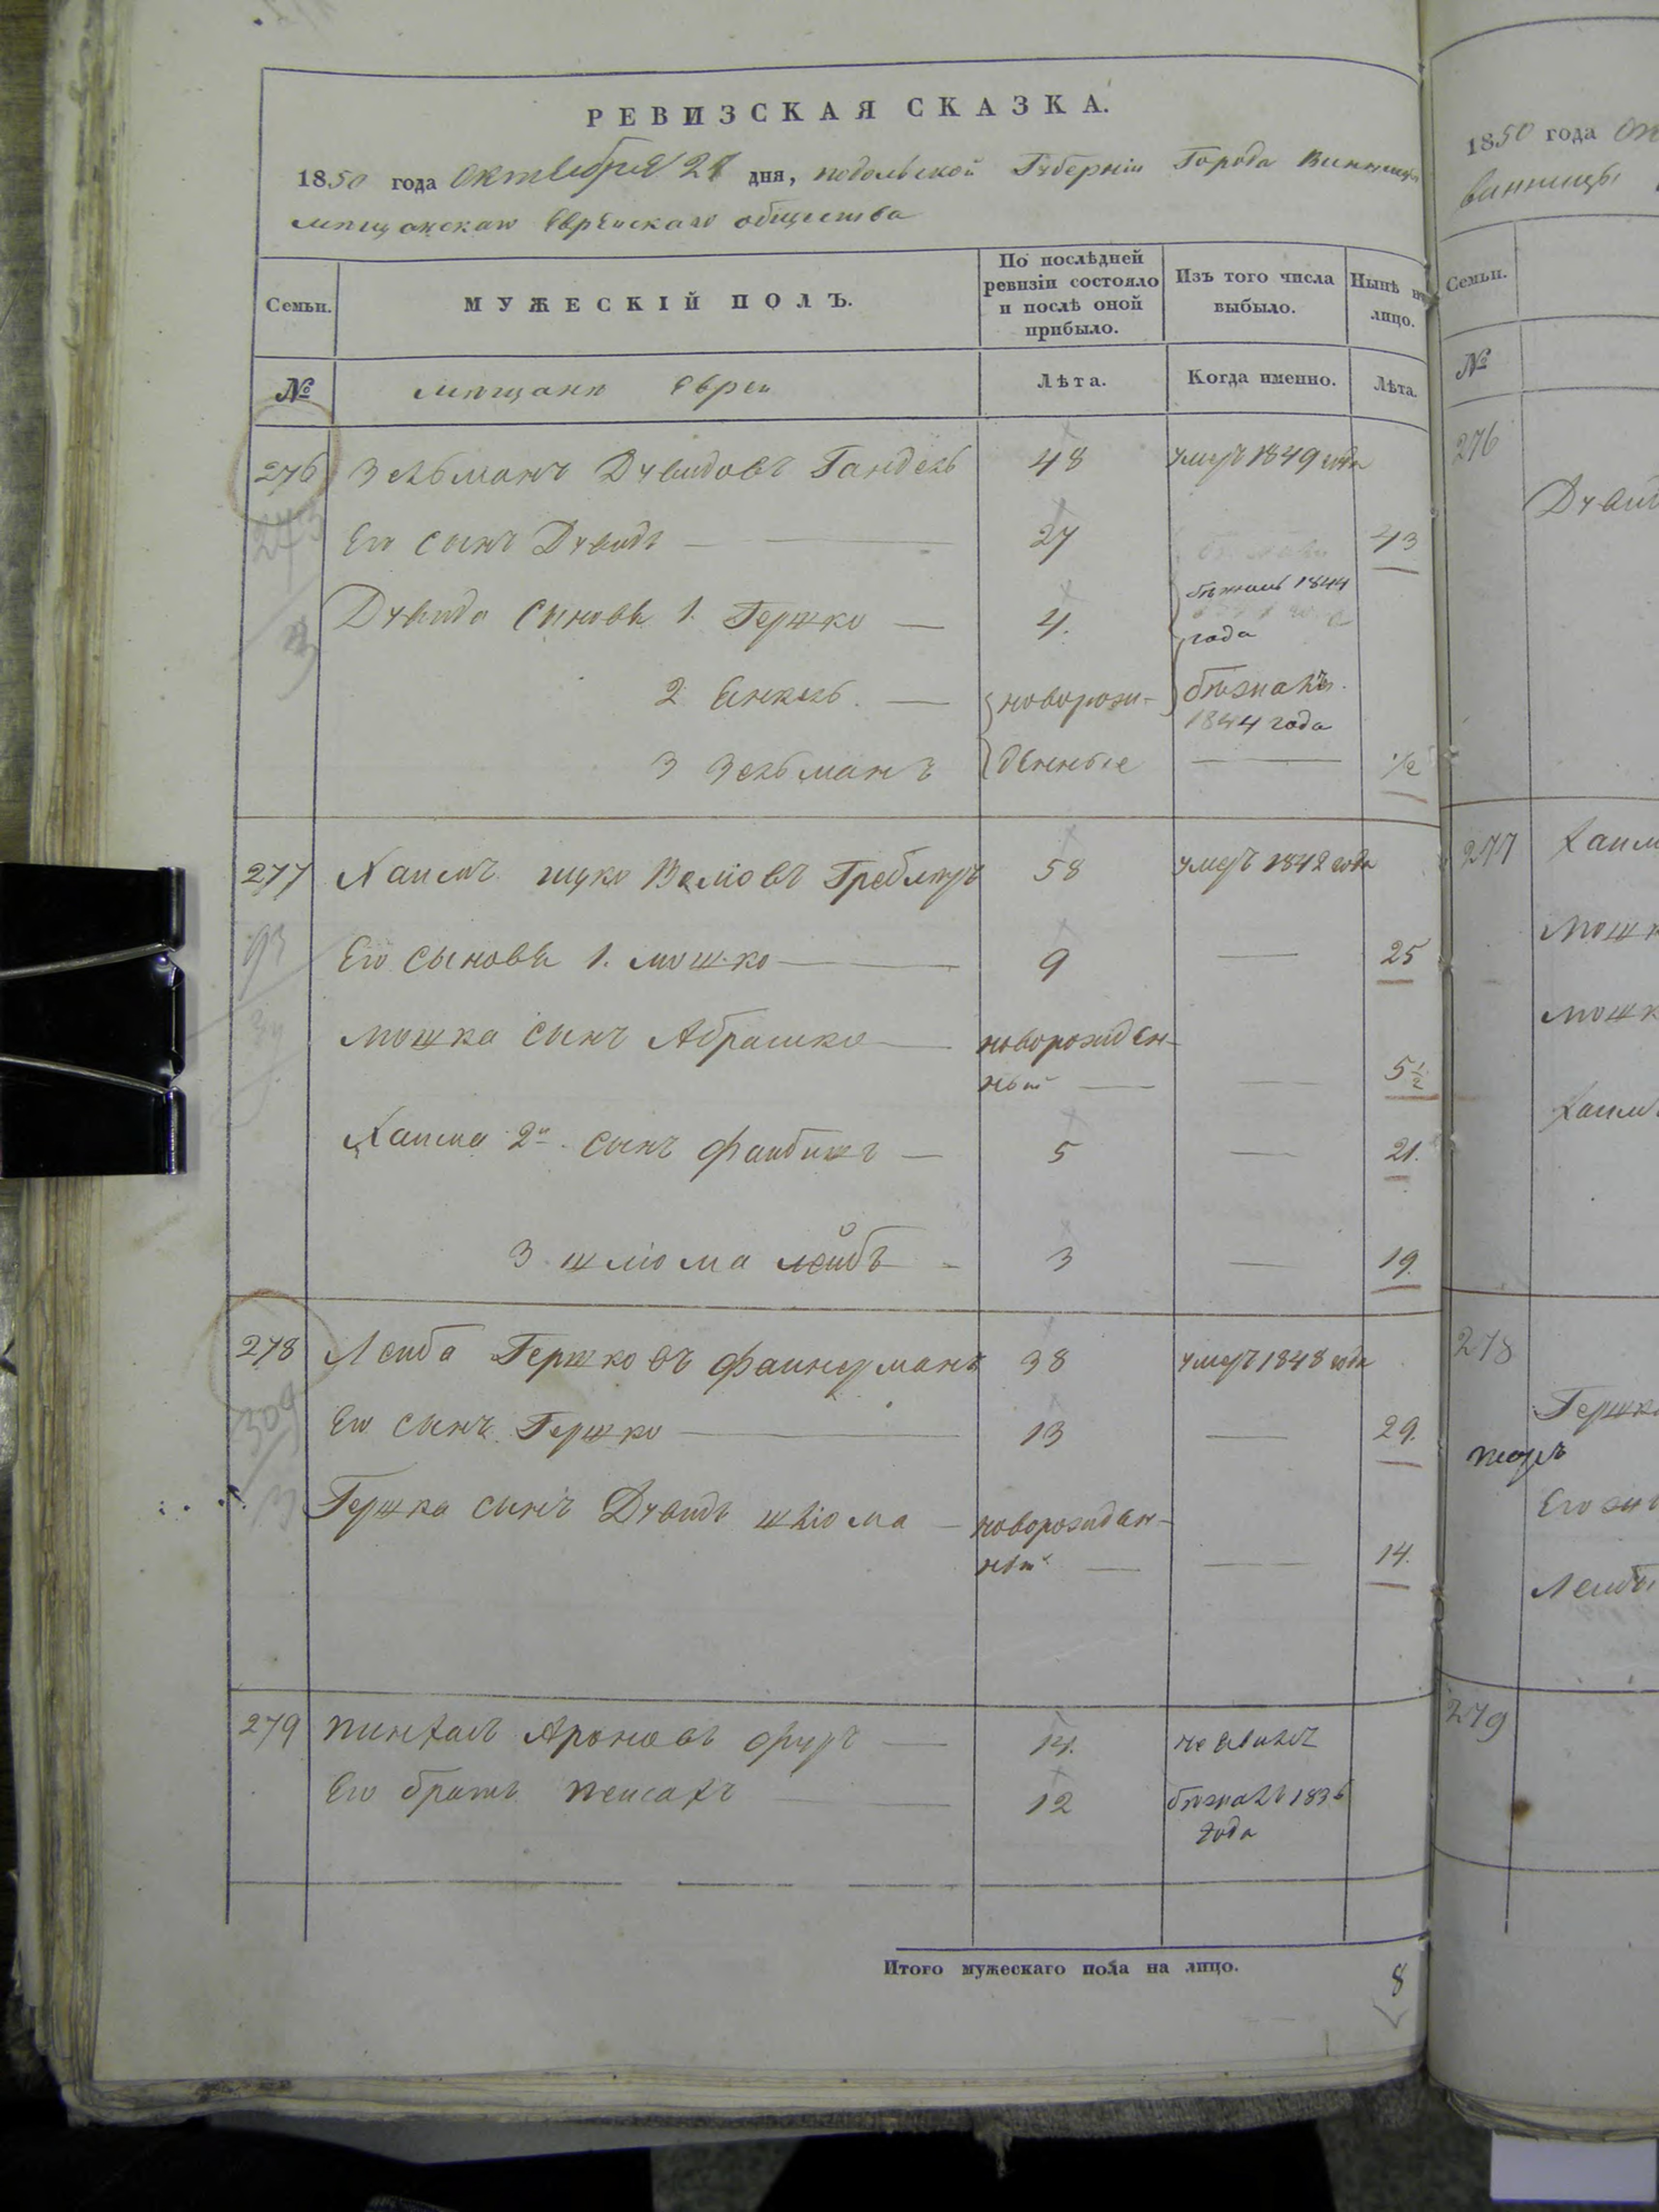 РЕВИЗСКАЯ СКАЗКА.
1850 года Октября 27 дня, подольской Губерніи Города Винницы
мѣщанскаго Еврейскаго общества
Семьи. МУЖЕСКІЙ ПОЛЪ. По послѣдней ревизіи состояло и послѣ оной прибыло. Изъ того числа выбыло. Нынѣ на лицо.
№ мѣщане Евреи Лѣта. Когда именно. Лѣта.
276 Зельманъ Дувидовъ Гандель 48 умеръ 1849 года
Его сынъ Дувидъ 27 43
Дувида сыновья 1. Гершко 4. бѣжалъ 1844 года
2 Янкель новорож- бѣжалъ 1844 года
3 Зельманъ денные 1/2
277 Хаимъ Ицко 58 умеръ 1842 года
Его сыновья 1. мошко 9 25
мошка сынъ Абрамко новорожденный 5 1/2
Хаима 2й сынъ Файбишъ 5 21.
3 шлюма лейбъ 3 19.
278 Лейба Гершковъ Файнерманъ 38 умеръ 1848 года
Его сынъ Гершко 13 29.
Гершка сынъ Дувидъ шлюма новорожденный 14.
279 Пинхасъ Ароновъ 14. не
Его братъ Пейсахъ 12 бѣжалъ 1836 года
Итого мужескаго пола на лицо. 8
1850 года
винницы
Семьи.
№
276
277 Хаим
мошк
мошк
Хаим
278
Гершк
Его
Лейбы
279